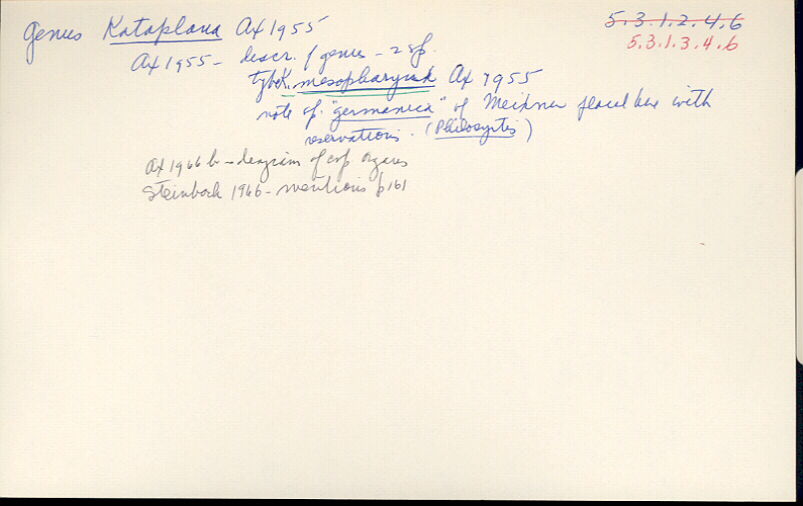 Genus Kataplana Ax 1955
5.3.1.2.4.6
5.3.1.3.4.6
Ax 1955 - descr. of genus - 2 sp.
type K. mesopharynx Ax 1955
note sp. "germanica" of Meixner placed here with
reservations. (Philosyrtis)
Ax 1966 b - diagram of cop organs
Steinbock 1966 - mentions p 161